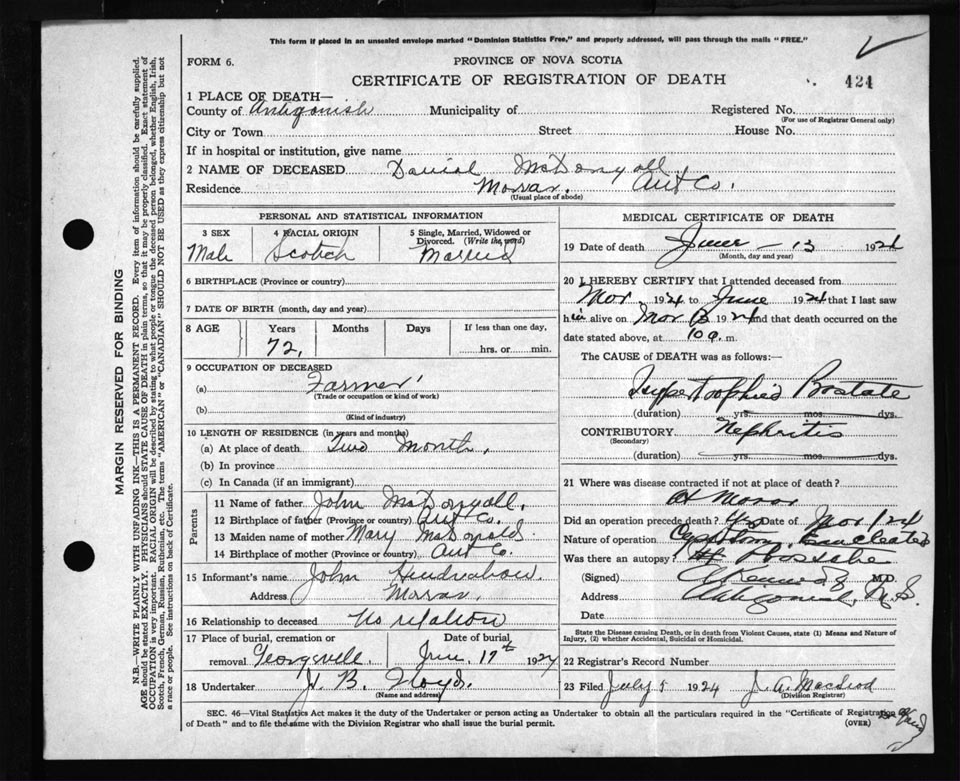 This form if placed in an unsealed envelope marked "Dominion Statistics Free," and properly addressed, will pass through the mails "FREE."
FORM 6.
PROVINCE OF NOVA SCOTIA
CERTIFICATE OF REGISTRATION OF DEATH
424
1 PLACE OF DEATH—
County of Antigonish Municipality of Registered No.
(For use of Registrar General only)
City or Town Street House No.
If in hospital or institution, give name
2 NAME OF DECEASED Daniel McDougall
Residence Morar. Ant Co.
(Usual place of abode)
PERSONAL AND STATISTICAL INFORMATION
3 SEX 4 RACIAL ORIGIN 5 Single, Married, Widowed or Divorced. (Write the word)
Male Scotch Married
6 BIRTHPLACE (Province or country)
7 DATE OF BIRTH (month, day and year)
8 AGE Years Months Days If less than one day,
72, hrs. or min.
9 OCCUPATION OF DECEASED
(a) Farmer
(Trade or occupation or kind of work)
(b)
(Kind of industry)
10 LENGTH OF RESIDENCE (in years and months)
(a) At place of death Two Month.
(b) In province
(c) In Canada (if an immigrant)
Parents
11 Name of father John McDougall.
12 Birthplace of father (Province or country) Ant Co.
13 Maiden name of mother Mary McDonald
14 Birthplace of mother (Province or country) Ant Co.
15 Informant's name John
Address Morar.
16 Relationship to deceased No relation
17 Place of burial, cremation or removal Georgeville. Date of burial June 17th 1924
18 Undertaker B. Floyd.
(Name and address)
MEDICAL CERTIFICATE OF DEATH
19 Date of death June - 13 1924
(Month, day and year)
20 I HEREBY CERTIFY that I attended deceased from
Mar. 1924 to June 1924 that I last saw
him alive on Mar 1924 and that death occurred on the
date stated above, at 10 a. m.
The CAUSE of DEATH was as follows:—
Hypertrophied Prostate
(duration) yrs. mos. dys.
CONTRIBUTORY Nephritis
(Secondary)
(duration) yrs. mos. dys.
21 Where was disease contracted if not at place of death?
At Morar
Did an operation precede death? Yes Date of Mar 1924
Nature of operation Enucleated
Was there an autopsy? Prostate
(Signed) M.D.
Address Antigonish, N.S.
Date
State the Disease causing Death, or in death from Violent Causes, state (1) Means and Nature of Injury, (2) whether Accidental, Suicidal or Homicidal.
22 Registrar's Record Number
23 Filed July 5 1924 J. A. MacLeod
(Division Registrar)
SEC. 46—Vital Statistics Act makes it the duty of the Undertaker or person acting as Undertaker to obtain all the particulars required in the "Certificate of Registration
of Death" and to file the same with the Division Registrar who shall issue the burial permit. (OVER)
MARGIN RESERVED FOR BINDING
N.B.—WRITE PLAINLY WITH UNFADING INK—THIS IS A PERMANENT RECORD. Every item of information should be carefully supplied.
AGE should be stated EXACTLY. PHYSICIANS should STATE CAUSE OF DEATH in plain terms, so that it may be properly classified. Exact statement of
OCCUPATION is very important. RACIAL ORIGIN will be described by stating to what people or tongue the deceased person belonged, whether English, Irish,
Scotch, French, German, Russian, Ruthenian, etc. The terms "AMERICAN" or "CANADIAN" SHOULD NOT BE USED as they express citizenship but not
a race or people. See instructions on back of Certificate.